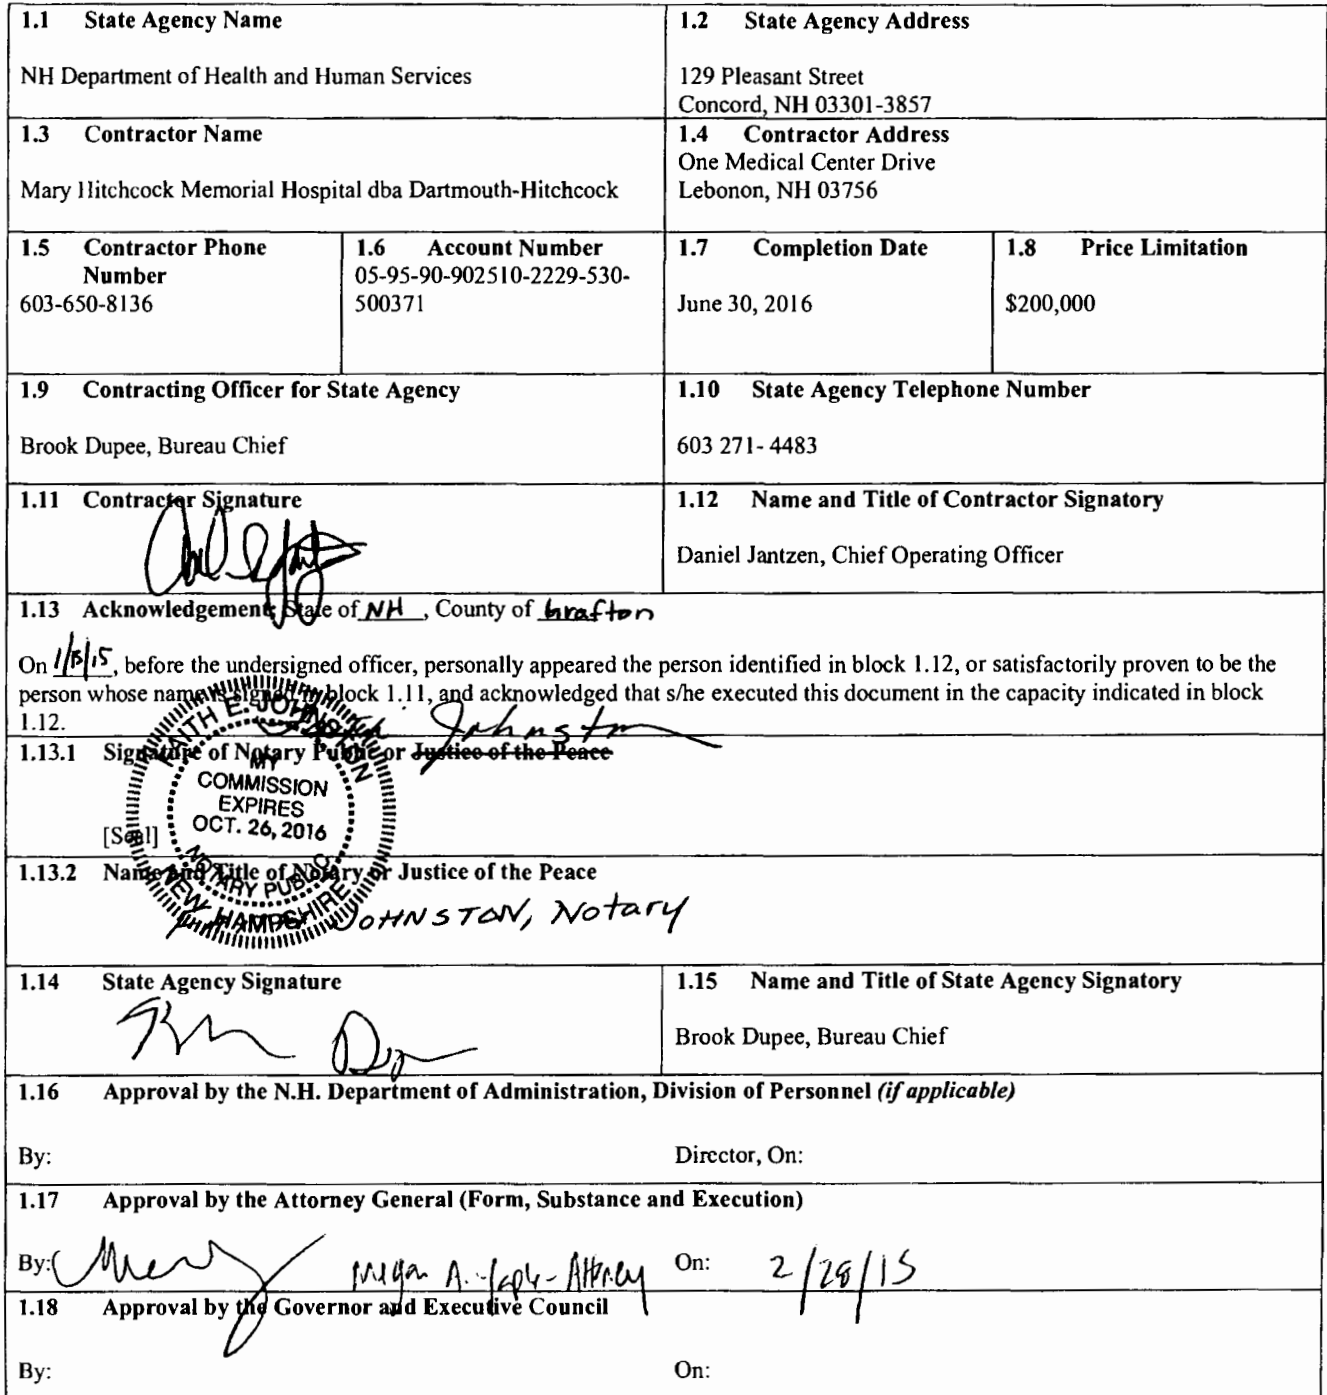 1.1 State Agency Name
NH Department of Health and Human Services
1.2 State Agency Address
129 Pleasant Street
Concord, NH 03301-3857
1.3 Contractor Name
Mary Hitchcock Memorial Hospital dba Dartmouth-Hitchcock
1.4 Contractor Address
One Medical Center Drive
Lebonon, NH 03756
1.5 Contractor Phone
Number
603-650-8136
1.6 Account Number
05-95-90-902510-2229-530-
500371
1.7 Completion Date
June 30, 2016
1.8 Price Limitation
$200,000
1.9 Contracting Officer for State Agency
Brook Dupee, Bureau Chief
1.10 State Agency Telephone Number
603 271- 4483
1.11 Contractor Signature
1.12 Name and Title of Contractor Signatory
Daniel Jantzen, Chief Operating Officer
1.13 Acknowledgement: State of NH, County of Grafton
On , before the undersigned officer, personally appeared the person identified in block 1.12, or satisfactorily proven to be the
person whose name is signed in block 1.11, and acknowledged that s/he executed this document in the capacity indicated in block
1.12.
Johnston
1.13.1 Signature of Notary Public or Justice of the Peace
FAITH E. JOHNSTON
MY
COMMISSION
EXPIRES
OCT. 26, 2016
NOTARY PUBLIC
NEW HAMPSHIRE
[Seal]
1.13.2 Name and Title of Notary or Justice of the Peace
JOHNSTON, Notary
1.14 State Agency Signature
1.15 Name and Title of State Agency Signatory
Brook Dupee, Bureau Chief
1.16 Approval by the N.H. Department of Administration, Division of Personnel (if applicable)
By: Director, On:
1.17 Approval by the Attorney General (Form, Substance and Execution)
By: Megan A. - Attorney On: 2/28/15
1.18 Approval by the Governor and Executive Council
By: On: